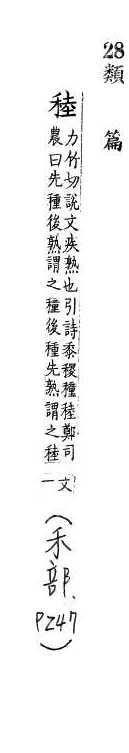 28類 篇
稑
力竹切說文疾熟也引詩黍稷種稑鄭司
農曰先種後熟謂之穜後種先熟謂之稑
文一
(禾部、P247)